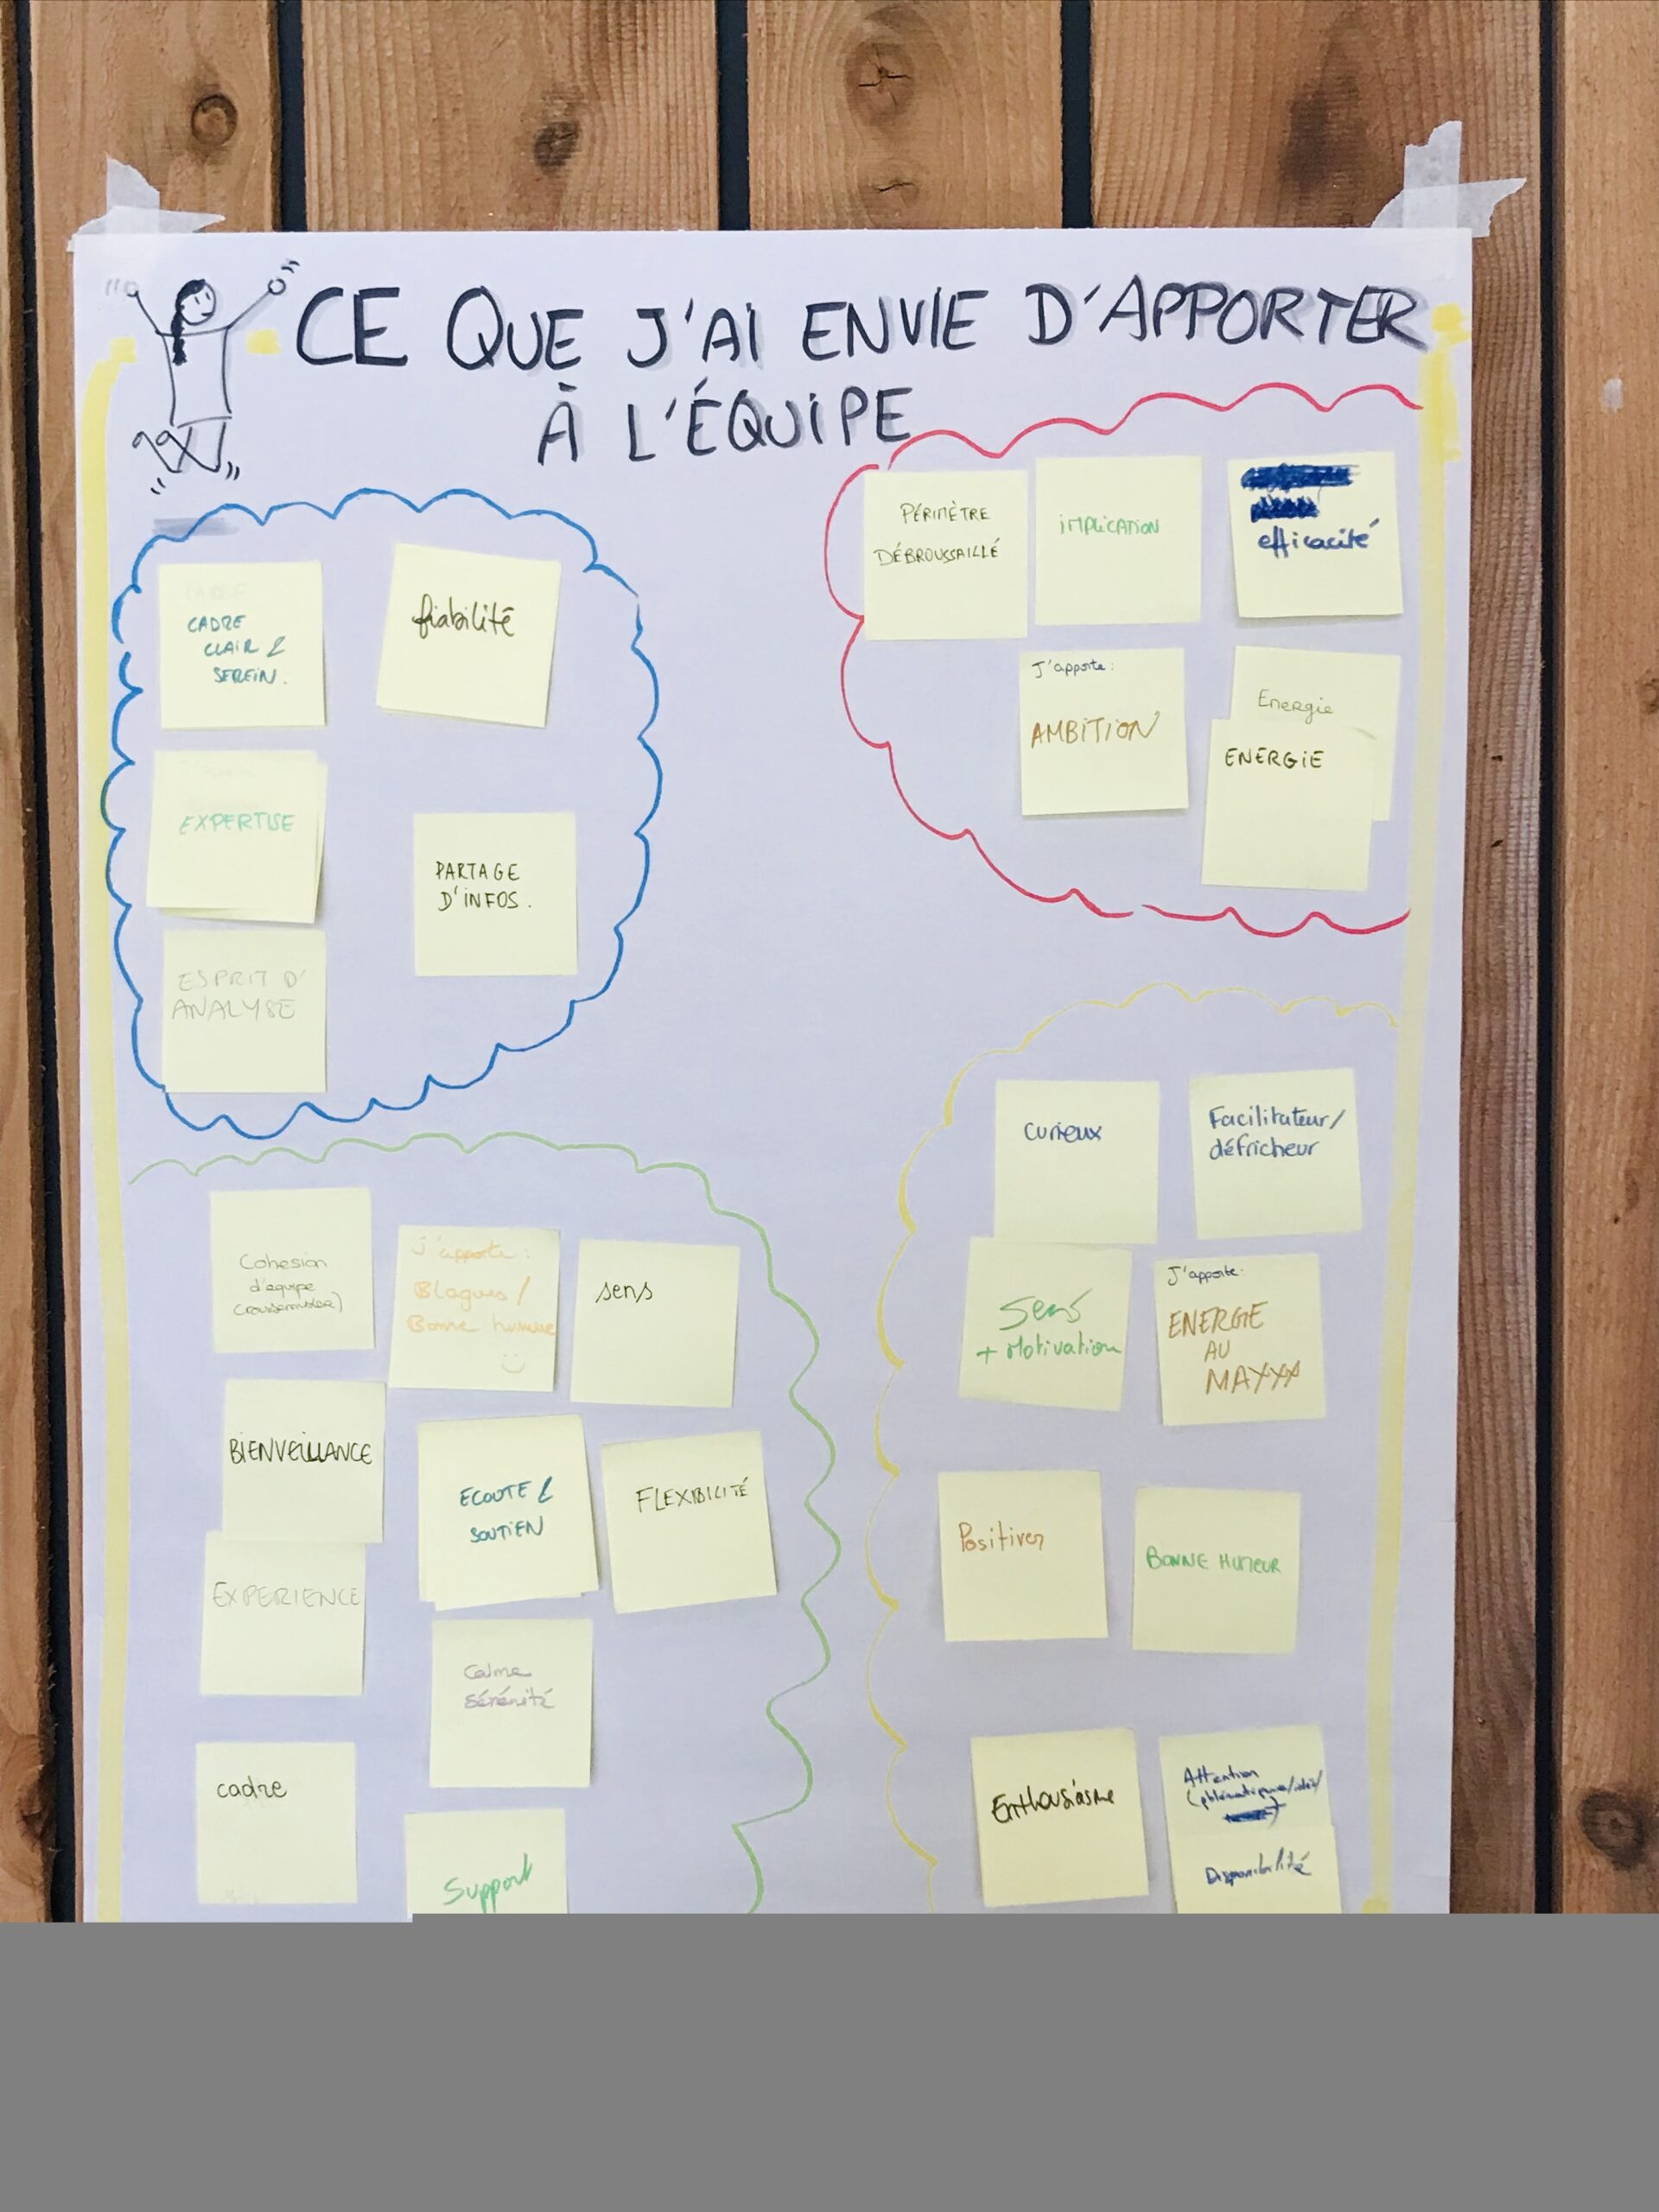 CE QUE J'AI ENVIE D'APPORTER
À L'ÉQUIPE
CADRE
CLAIR &
SEREIN.
fiabilité
EXPERTISE
PARTAGE
D'INFOS.
ESPRIT D'
ANALYSE
PÉRIMÈTRE
DÉBROUSSAILLÉ
IMPLICATION
efficacité
J'apporte:
AMBITION
Energie
ENERGIE
Cohesion
d'equipe
J'apporte:
Blagues/
Bonne humeur
sens
BIENVEILLANCE
ECOUTE &
SOUTIEN
FLEXIBILITÉ
EXPERIENCE
Calme
Sérénité
cadre
Support
curieux
Facilitateur/
défricheur
Sens
+ Motivation
J'apporte:
ENERGIE
AU
MAXXX
Positiver
BONNE HUMEUR
Enthousiasme
Attention
Disponibilité